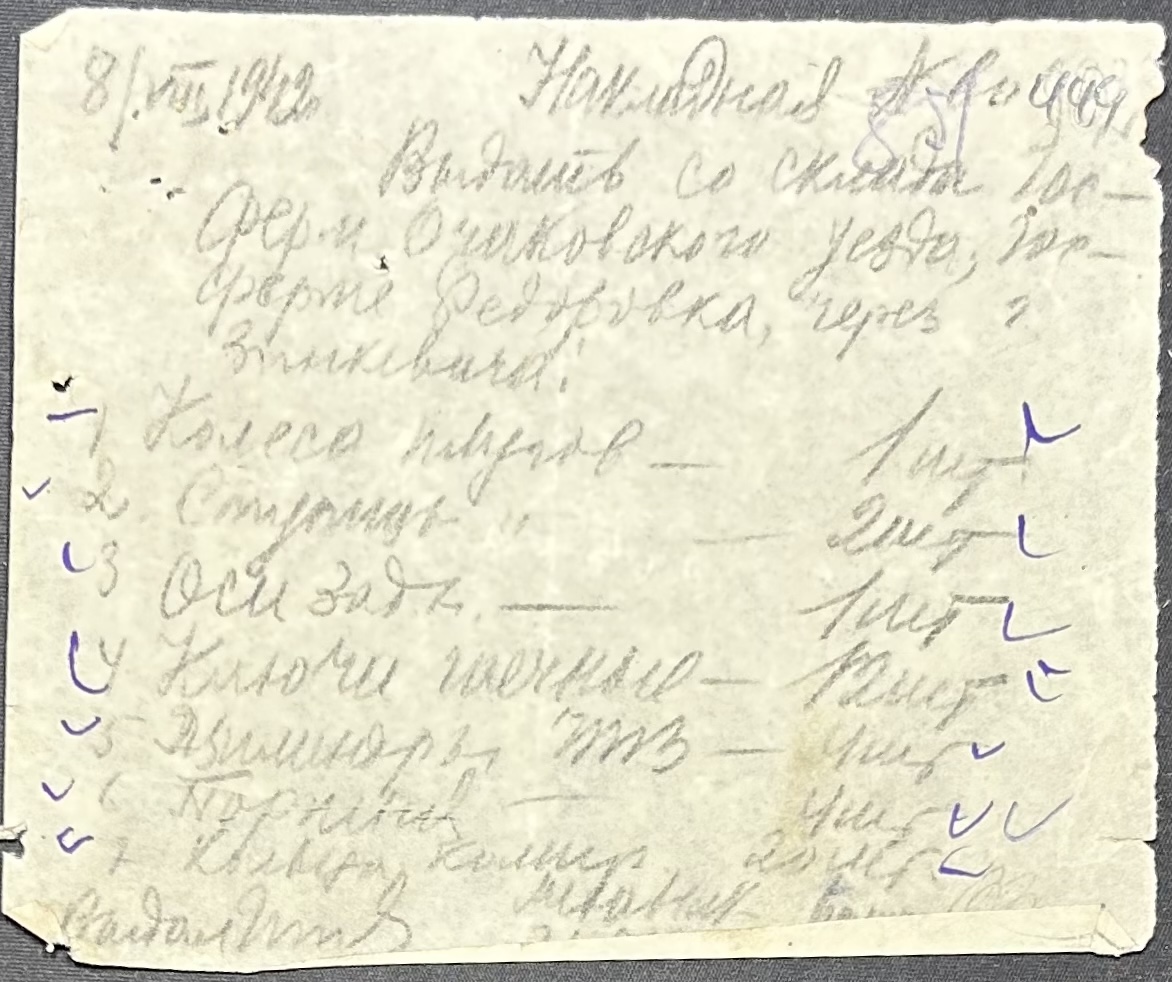 8/VIII 1942 Накладная №
Выдать со склада Гос-
ферм Очаковского уезда, Гос-
ферме Федоровка, через г
Зинкевича:
1 Колесо плугов — 1 шт
2 Ступиць " — 2 шт
3 Оси задн. — 1 шт
4 Ключи гаечные — 12 шт
5 Цилиндры ХТЗ — 4 шт
6 Поршни — 4 шт
7 Кольца компр 20 шт
Выдал